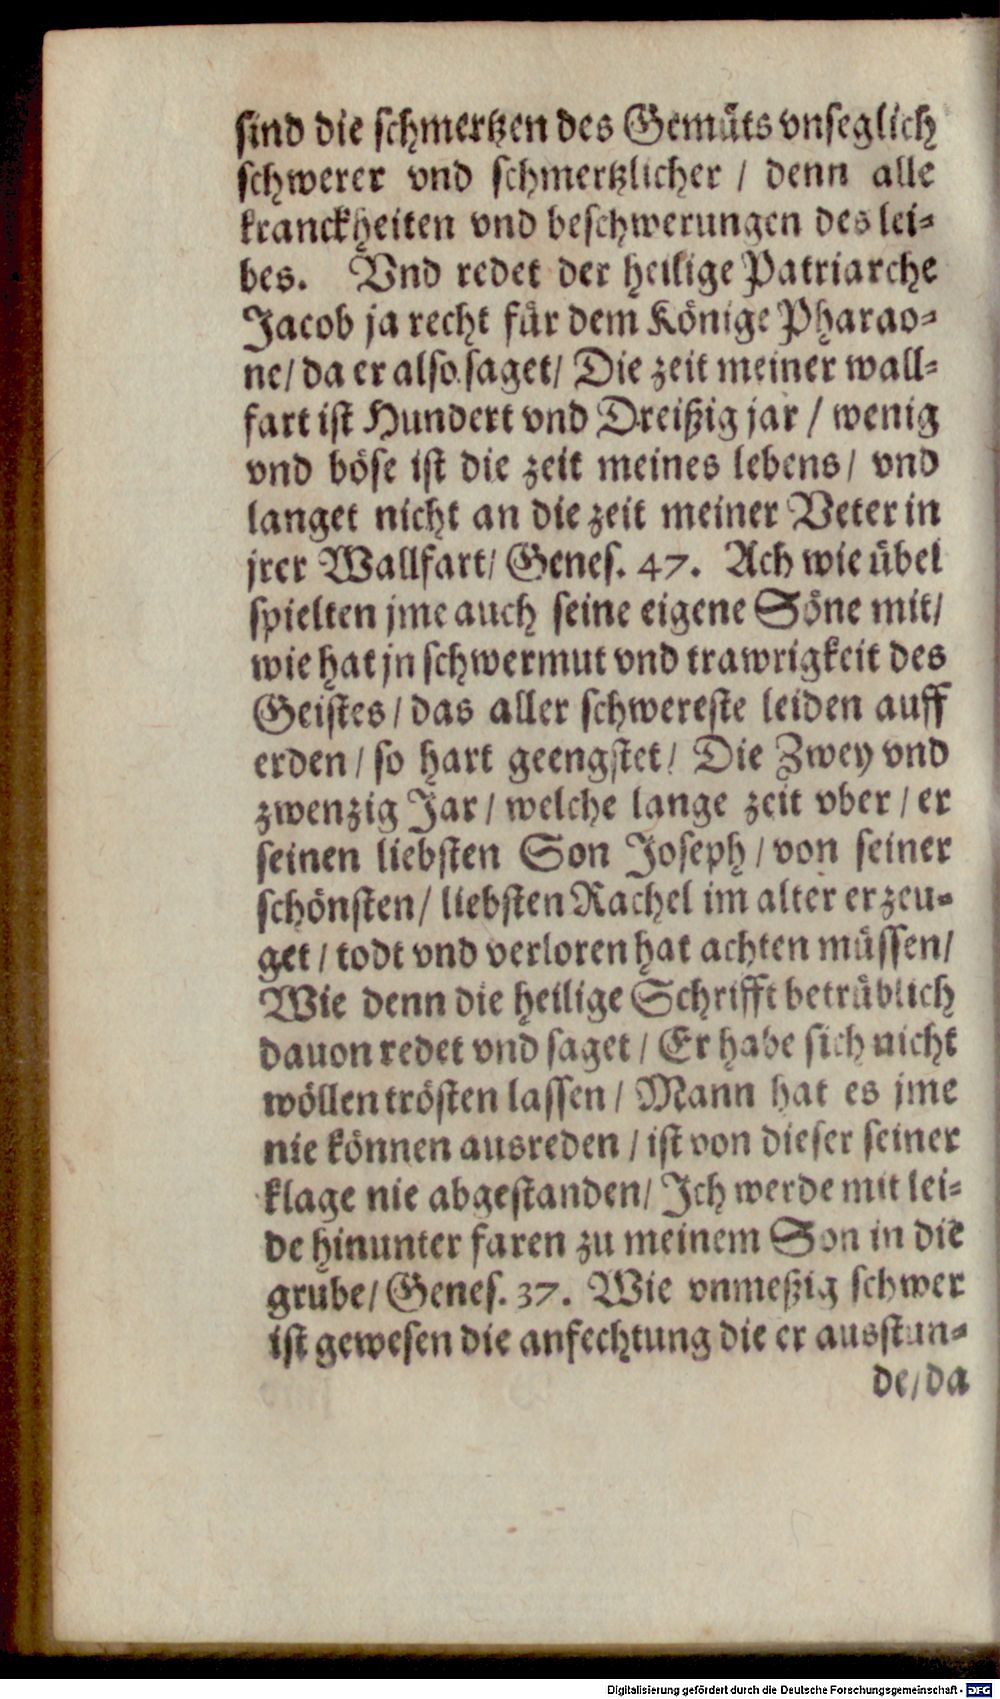 sind die schmertzen des Gemüts vnseglich
schwerer vnd schmertzlicher / denn alle
kranckheiten vnd beschwerungen des lei-
bes. Vnd redet der heilige Patriarche
Jacob ja recht für dem Könige Pharao-
ne / da er also saget / Die zeit meiner wall-
fart ist Hundert vnd Dreißig jar / wenig
vnd böse ist die zeit meines lebens / vnd
langet nicht an die zeit meiner Veter in
jrer Wallfart / Genes. 47. Ach wie übel
spielten jme auch seine eigene Söne mit /
wie hat jn schwermut vnd trawrigkeit des
Geistes / das aller schwereste leiden auff
erden / so hart geengstet / Die Zwey vnd
zwenzig Jar / welche lange zeit vber / er
seinen liebsten Son Joseph / von seiner
schönsten / liebsten Rachel im alter erzeu-
get / todt vnd verloren hat achten müssen /
Wie denn die heilige Schrifft betrüblich
dauon redet vnd saget / Er habe sich nicht
wöllen trösten lassen / Mann hat es jme
nie können ausreden / ist von dieser seiner
klage nie abgestanden / Ich werde mit lei-
de hinunter faren zu meinem Son in die
grube / Genes. 37. Wie vnmeßig schwer
ist gewesen die anfechtung die er ausstun-
de / da
Digitalisierung gefördert durch die Deutsche Forschungsgemeinschaft - DFG